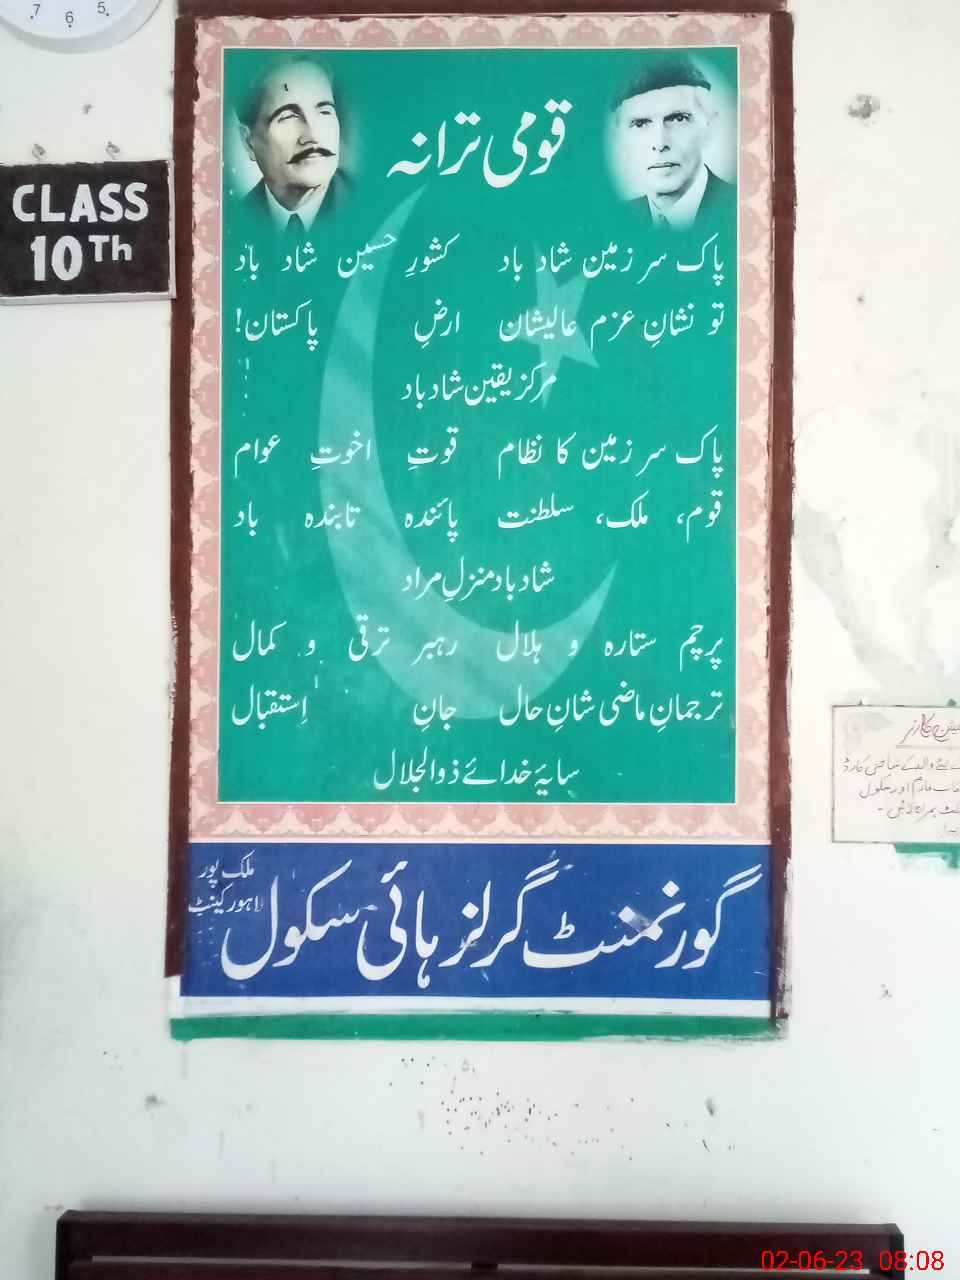 7 6 5
CLASS
10Th
قومی ترانہ
پاک سر زمین شاد باد کشورِ حسین شاد باد
تو نشانِ عزم عالیشان ارضِ پاکستان!
مرکز یقین شاد باد
پاک سر زمین کا نظام قوتِ اخوتِ عوام
قوم، ملک، سلطنت پائندہ تابندہ باد
شاد باد منزلِ مراد
پرچم ستارہ و ہلال رہبر ترقی و کمال
ترجمانِ ماضی شانِ حال جانِ اِستقبال
سایۂ خدائے ذوالجلال
گورنمنٹ گرلز ہائی سکول
ملک پور
لاہور کینٹ
کارنر
والد کے شناختی کارڈ
فارم اور سکول
ہمراہ لائیں۔
02-06-23 08:08